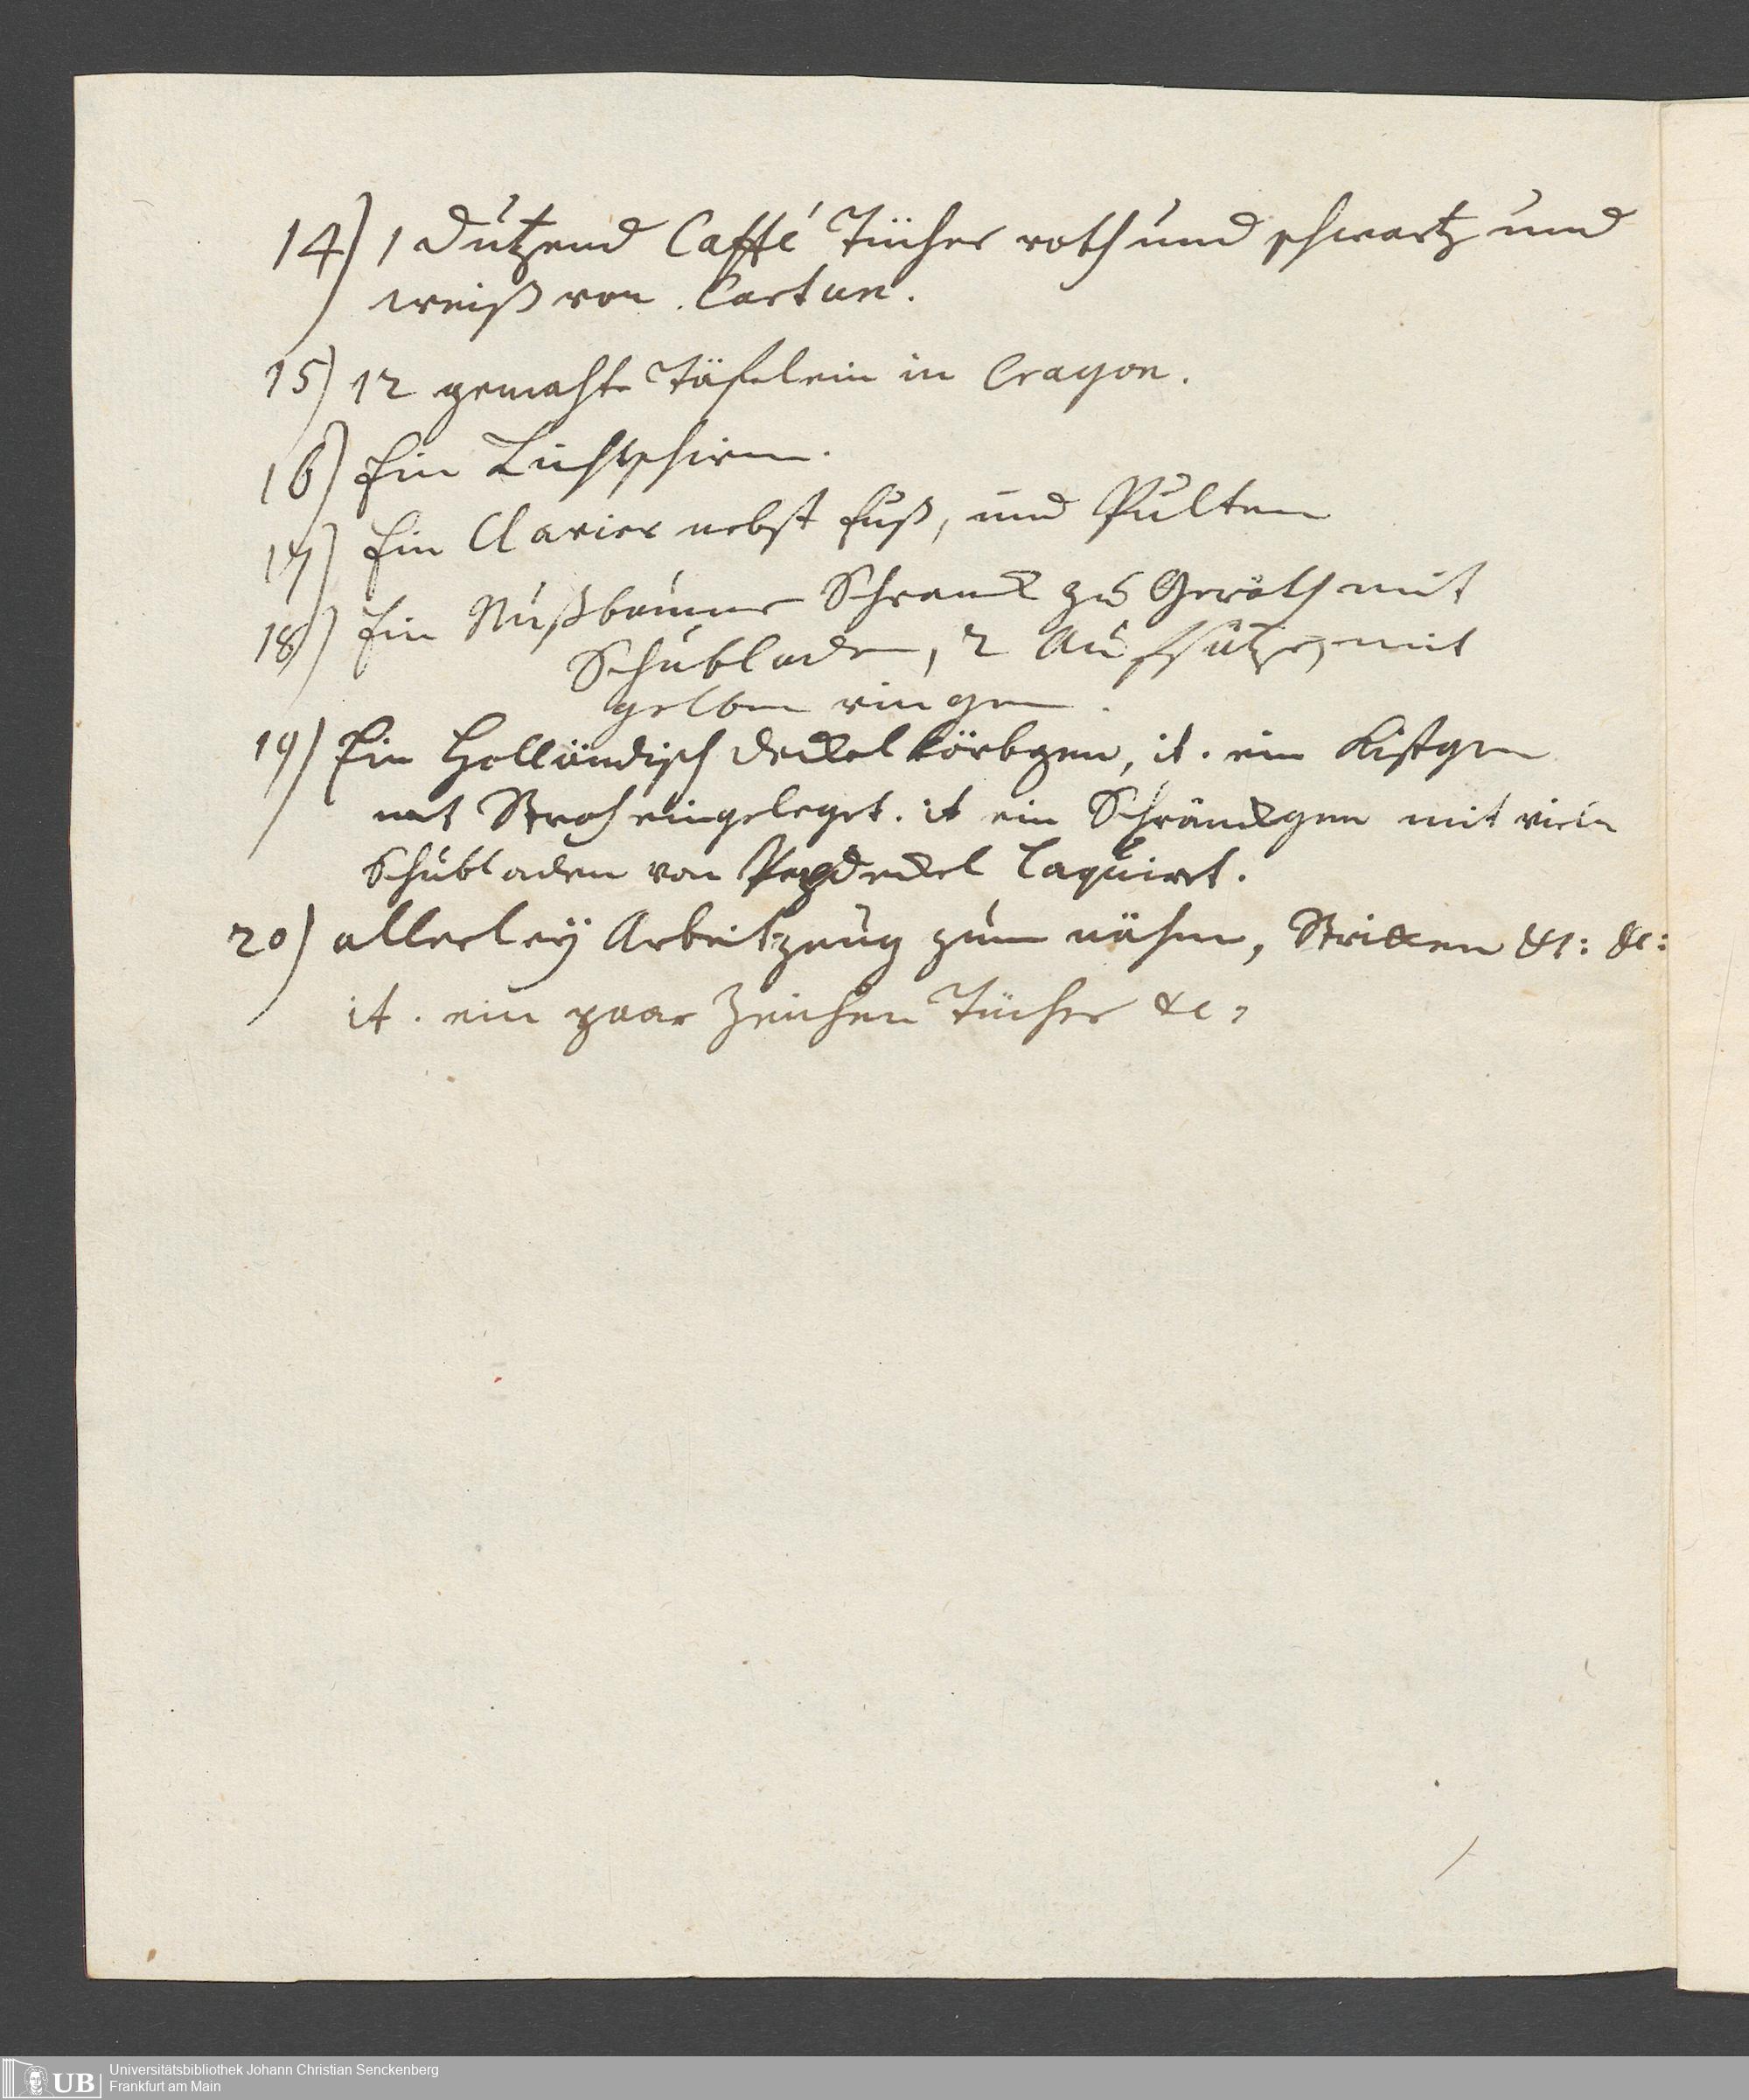 14) 1 Dutzend Caffé Tücher roth und schwartz und
weiß von Cartun.
15) 12 gemahlte Täfelein in Crayon.
16) Ein Lichtschirm.
17) Ein Clavier nebst fuß, und Pulten
18) Ein Nußbaumer Schranck zu Geräth mit
Schubladen, 2 Aufsätzen mit
gelben ringen.
19) Ein Holländisch deckel körbgen, it. ein Kistgen
mit Stroh eingeleget. it ein Schränckgen mit viele
Schubladen von Papdeckel laquiret.
20) allerley Arbeitzeug zum nähen, Stricken &c: &c:
it. ein paar Zeichen Tücher &c:
UB Universitätsbibliothek Johann Christian Senckenberg
Frankfurt am Main